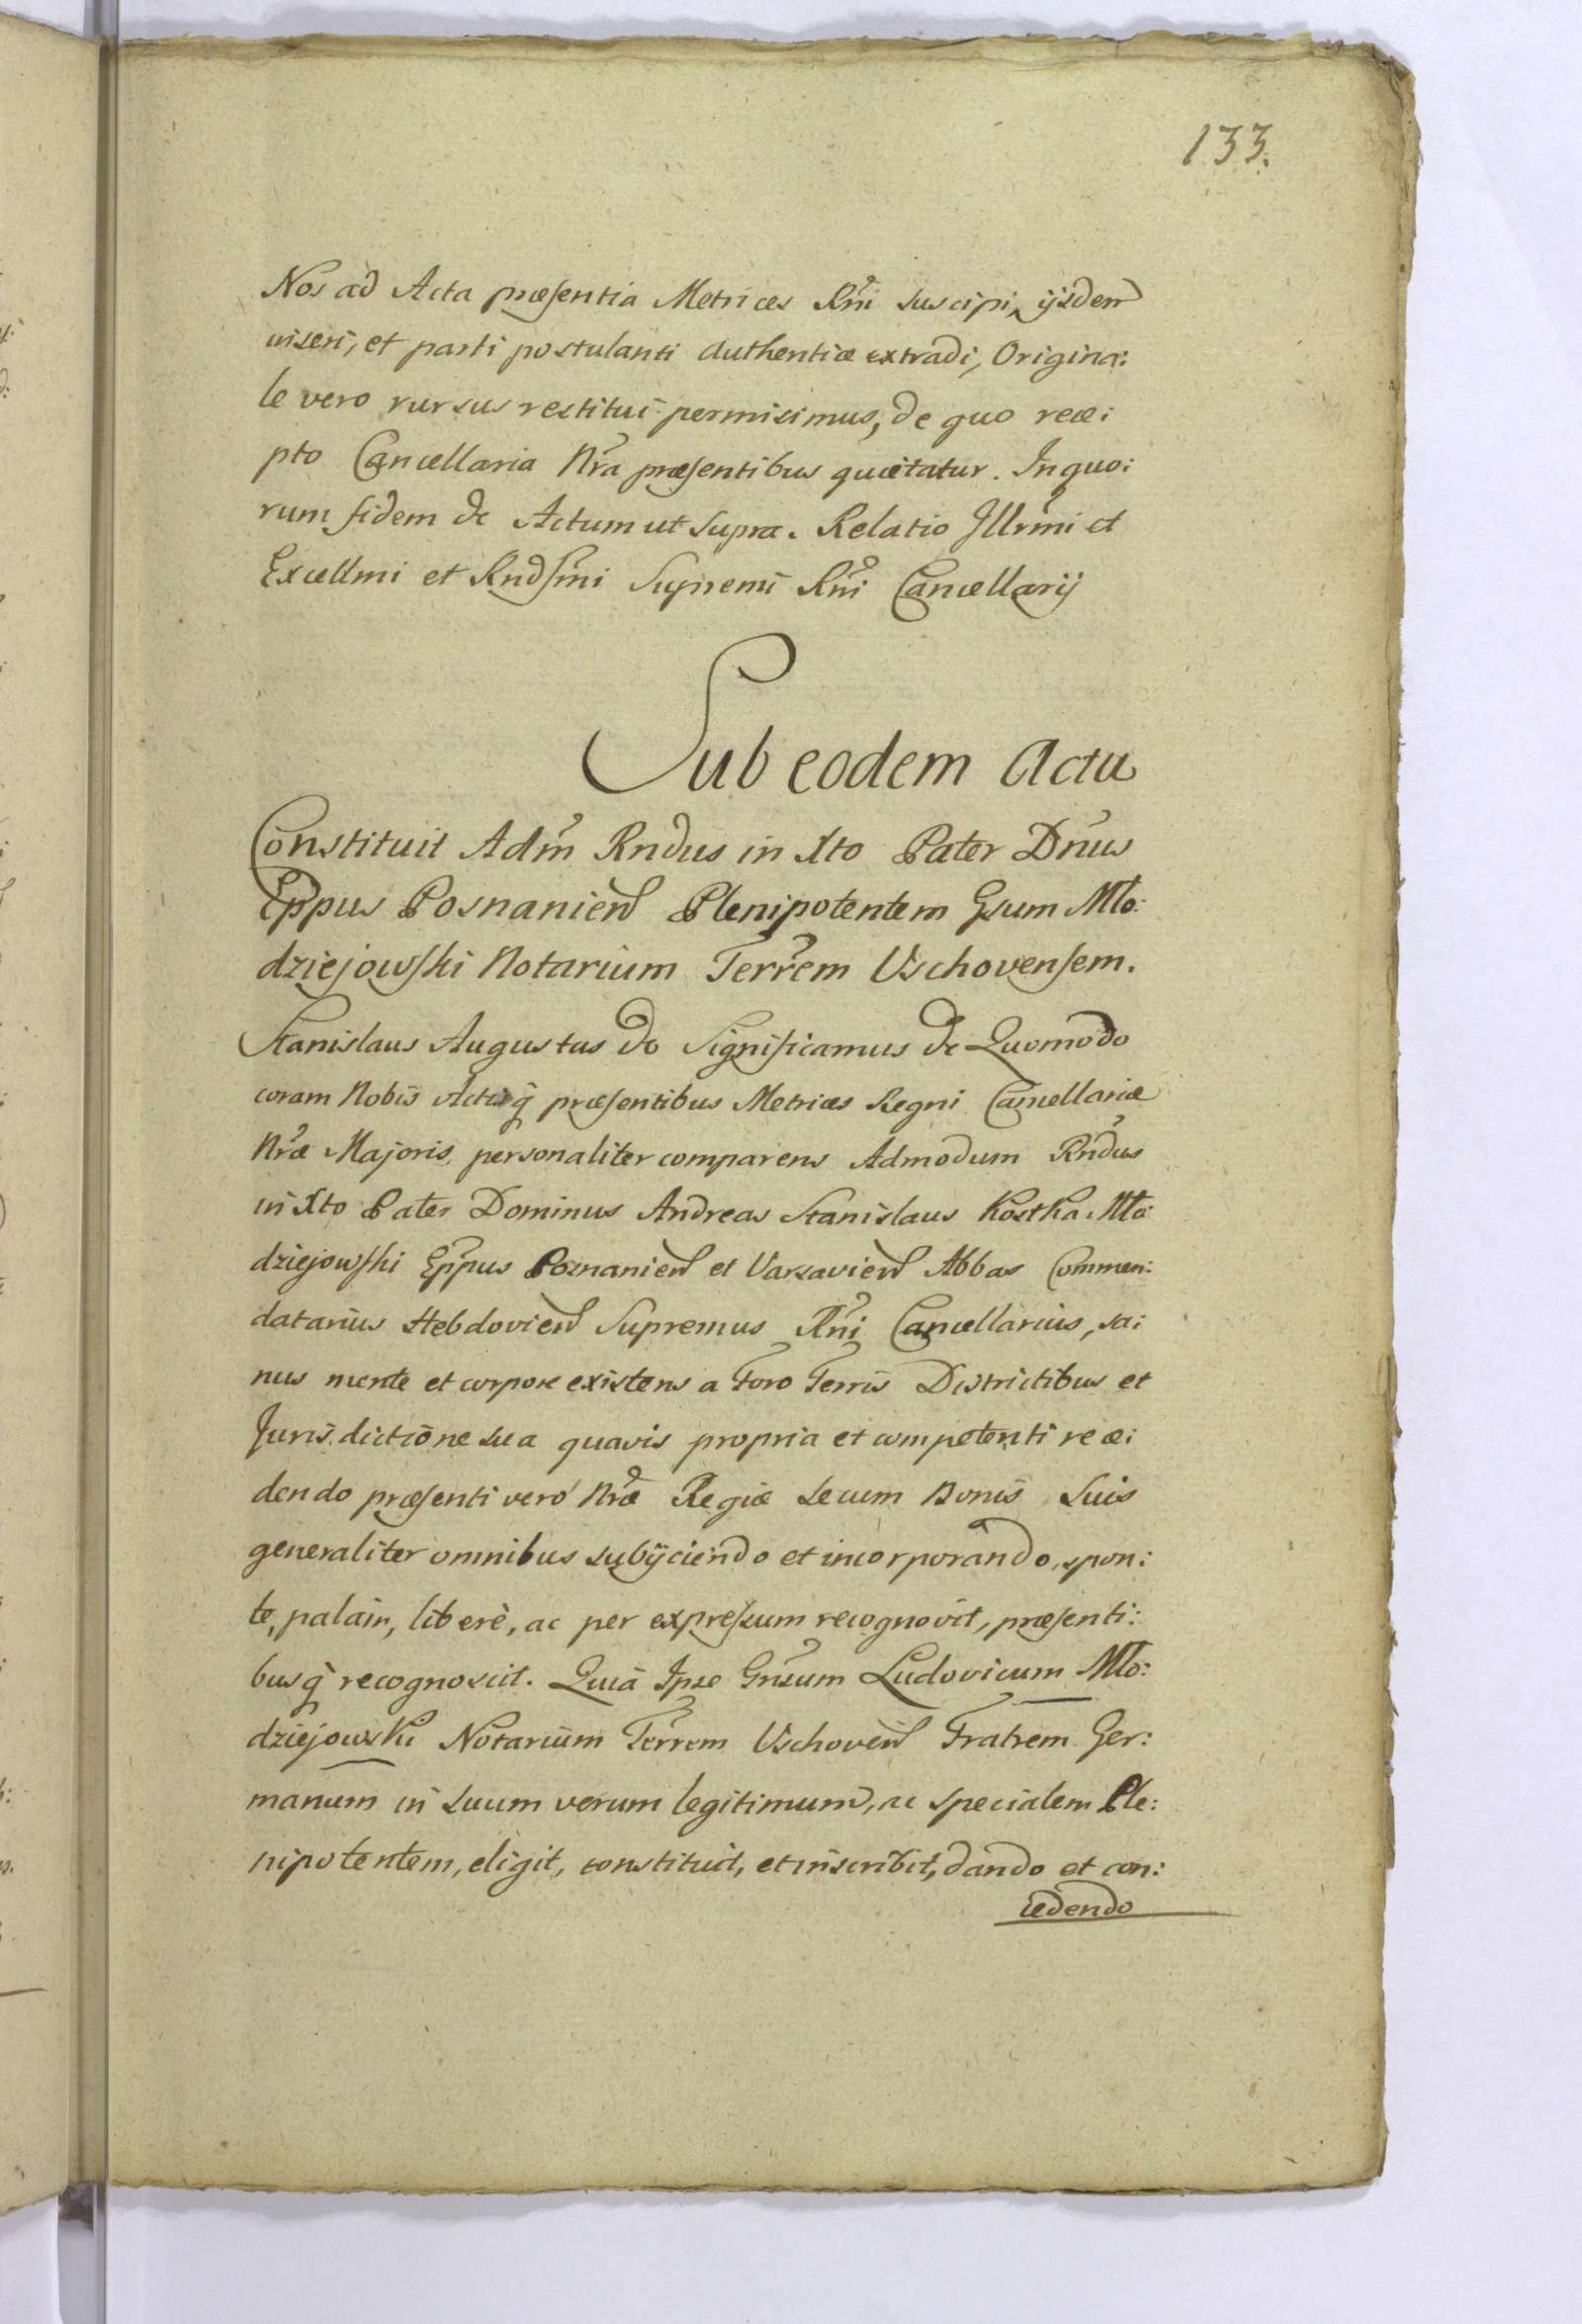 133.
Nos ad Acta præsentia Metrices Rñi suscipi, ijsdem
inseri, et parti postulanti authentice extradi, Origina:
le vero rursus restitui permisimus, de quo rece:
pto Cancellaria Nra præsentibus quietatur. In quo:
rum fidem &c Actum ut supra. Relatio Illrmi et
Excellmi et Rndssmi Supremi Rñi Cancellarij
Sub eodem Actu
Constituit Adm Rndus in Xto Pater Dnus
Eppus Posnanien Plenipotentem Gsum Mło:
dziejowski Notarium Terrem Vschovensem.
Stanislaus Augustus &c Significamus &c Quomodo
coram Nobis Actisq præsentibus Metrices Regni Cancellariæ
Nræ Majoris personaliter comparens Admodum Rndus
in Xto Pater Dominus Andreas Stanislaus Kostka Mło
dziejowski Eppus Poznanien et Varsavien Abbas Commen:
datarius Hebdovien Supremus Rñi Cancellarius, sa:
nus mente et corpore existens a Foro Terris Districtibus et
Jurisdictione sua quavis propria et competenti rece:
dendo præsenti verò Nræ Regiæ secum Bonis suis
generaliter omnibus subijciendo et incorporando, spon:
te, palam, liberè, ac per expressum recognovit, præsenti:
busq recognoscit. Quia Ipse Gnsum Ludovicum Mło:
dziejowski Notarium Terrem Vschovien Fratrem Ger:
manum in suum verum legitimum, ac specialem Ple:
nipotentem, eligit, constituit, et inscribit, dando et con:
cedendo